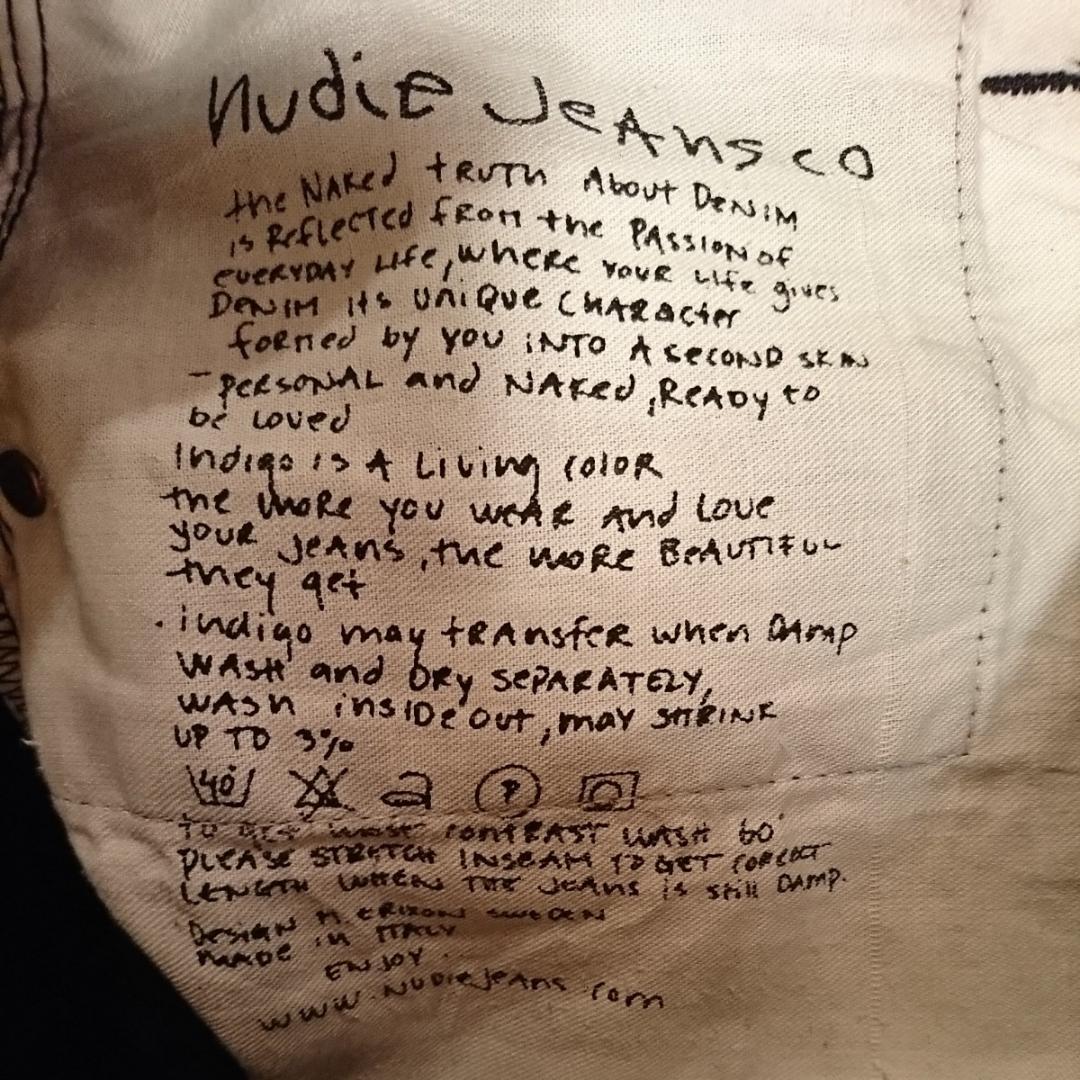 Nudie Jeans co
the Naked truth About Denim
is Reflected from the Passion of
everyday Life, where your Life gives
Denim its unique Character
formed by you into A second skin
- Personal and Naked, Ready to
be Loved
Indigo is A Living color
the more you wear and Love
your jeans, the more Beautiful
they get
. indigo may transfer when Damp
Wash and Dry separately,
wash inside out, may shrink
up to 3%
40 P
to get most contrast wash 60°
Please stretch inseam to get correct
Length when the jeans is still Damp.
Design M. Erixson Sweden
made in Italy
Enjoy.
www.Nudiejeans.com